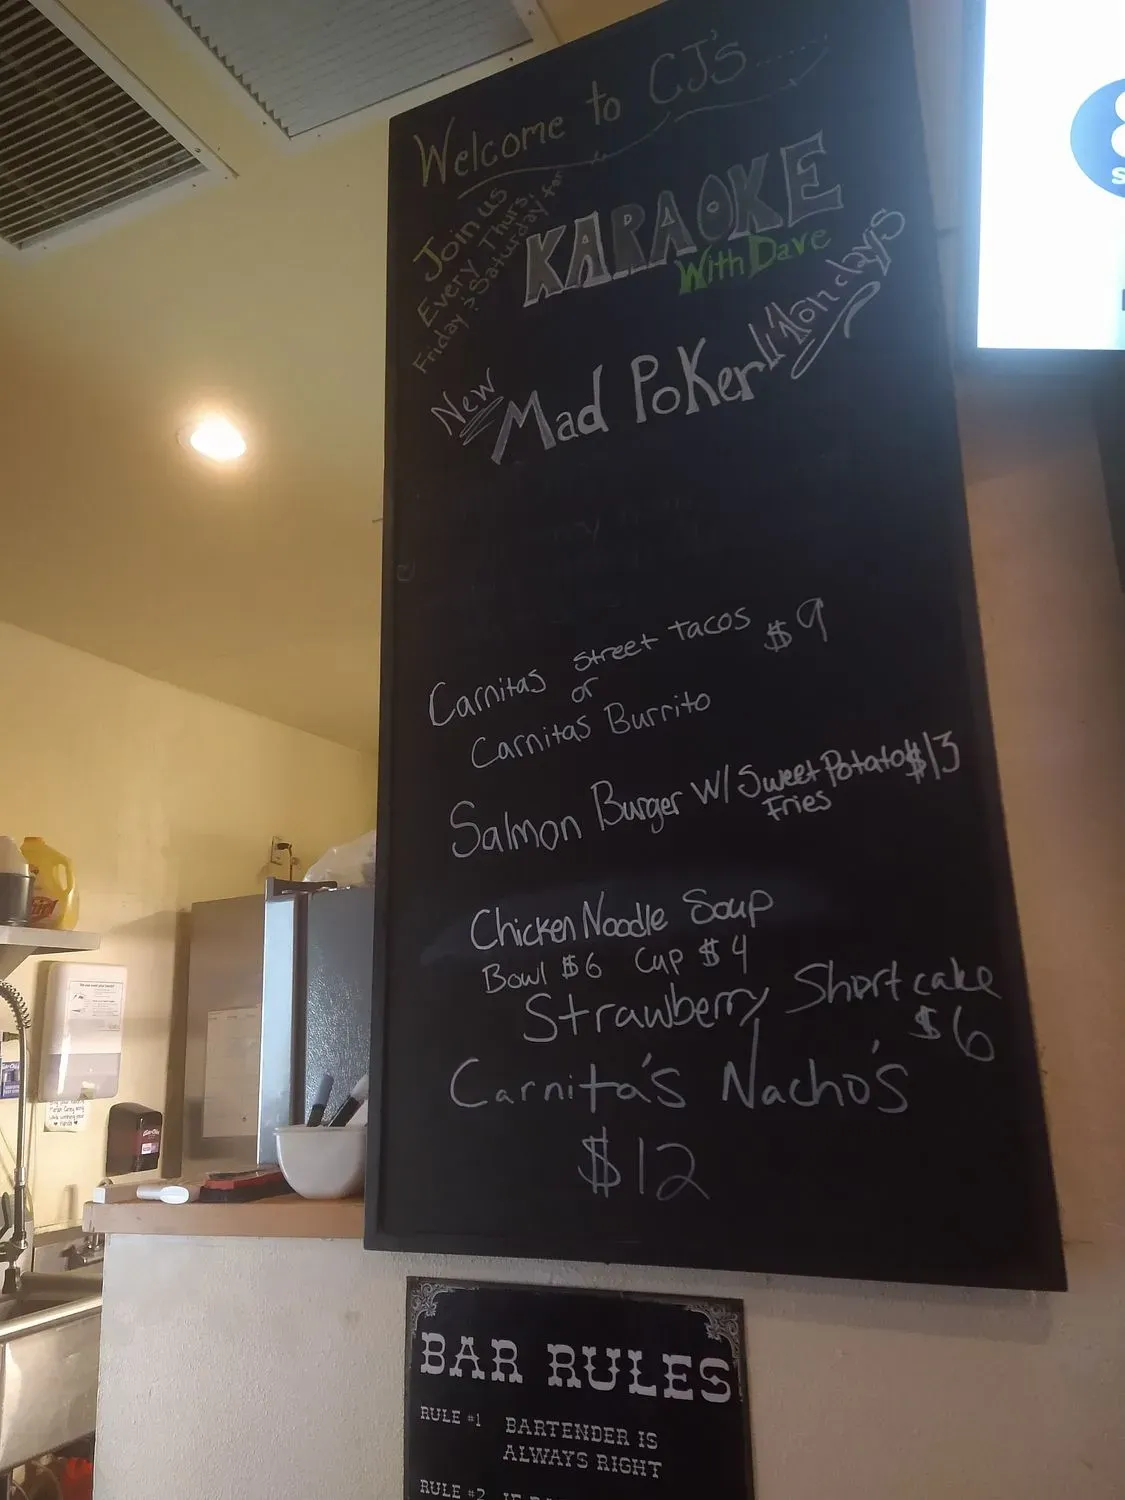 Welcome to CJ's........
Join us
Every Thurs,
Friday & Saturday for
KARAOKE
With Dave
New
Mad PoKer
Mondays
Carnitas Street tacos $9
or
Carnitas Burrito
Salmon Burger W/ Sweet Potato $13
Fries
Chicken Noodle Soup
Bowl $6 Cup $4
Strawberry Shortcake
$6
Carnita's Nacho's
$12
BAR RULES
RULE #1 BARTENDER IS
ALWAYS RIGHT
RULE #2